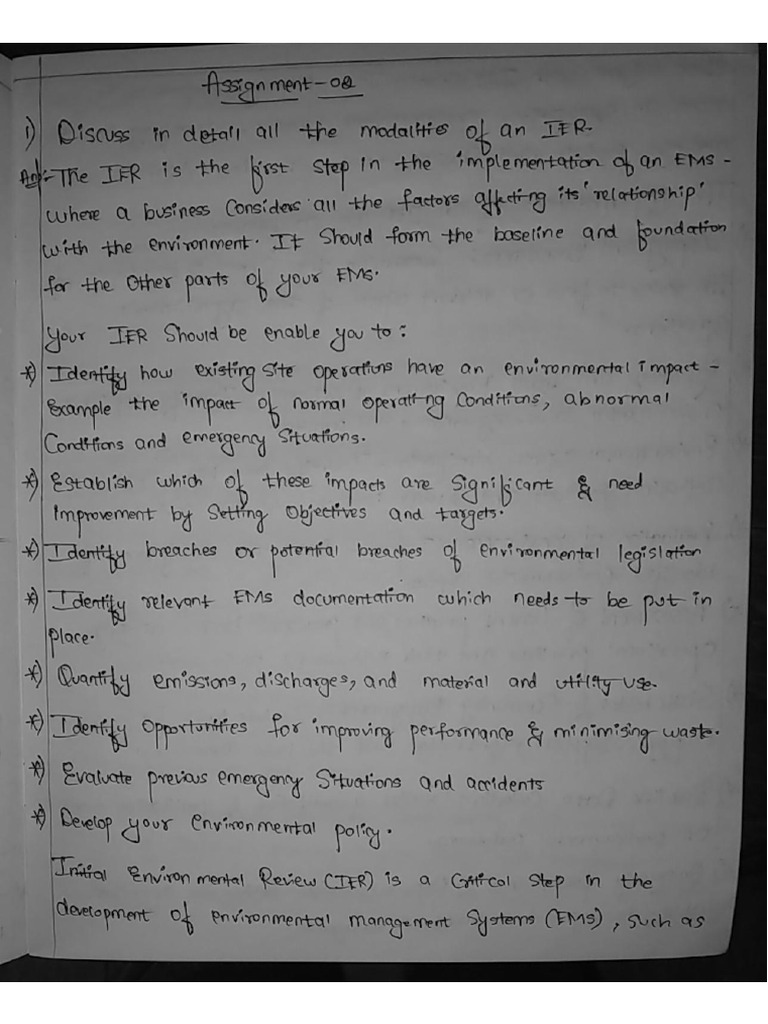 Assignment-02
1) Discuss in detail all the modalities of an IER.
Ans:- The IER is the first step in the implementation of an EMS -
where a business considers all the factors affecting its 'relationship'
with the environment. It should form the baseline and foundation
for the other parts of your EMS.
Your IER should be enable you to:
*) Identify how existing site operations have an environmental impact -
Example the impact of normal operating conditions, abnormal
conditions and emergency situations.
*) Establish which of these impacts are significant & need
improvement by setting objectives and targets.
*) Identify breaches or potential breaches of environmental legislation
*) Identify relevant EMS documentation which needs to be put in
place.
*) Quantify emissions, discharges, and material and utility use.
*) Identify opportunities for improving performance & minimising waste.
*) Evaluate previous emergency situations and accidents
*) Develop your environmental policy.
Initial Environmental Review (IER) is a critical step in the
development of environmental management systems (EMS), such as